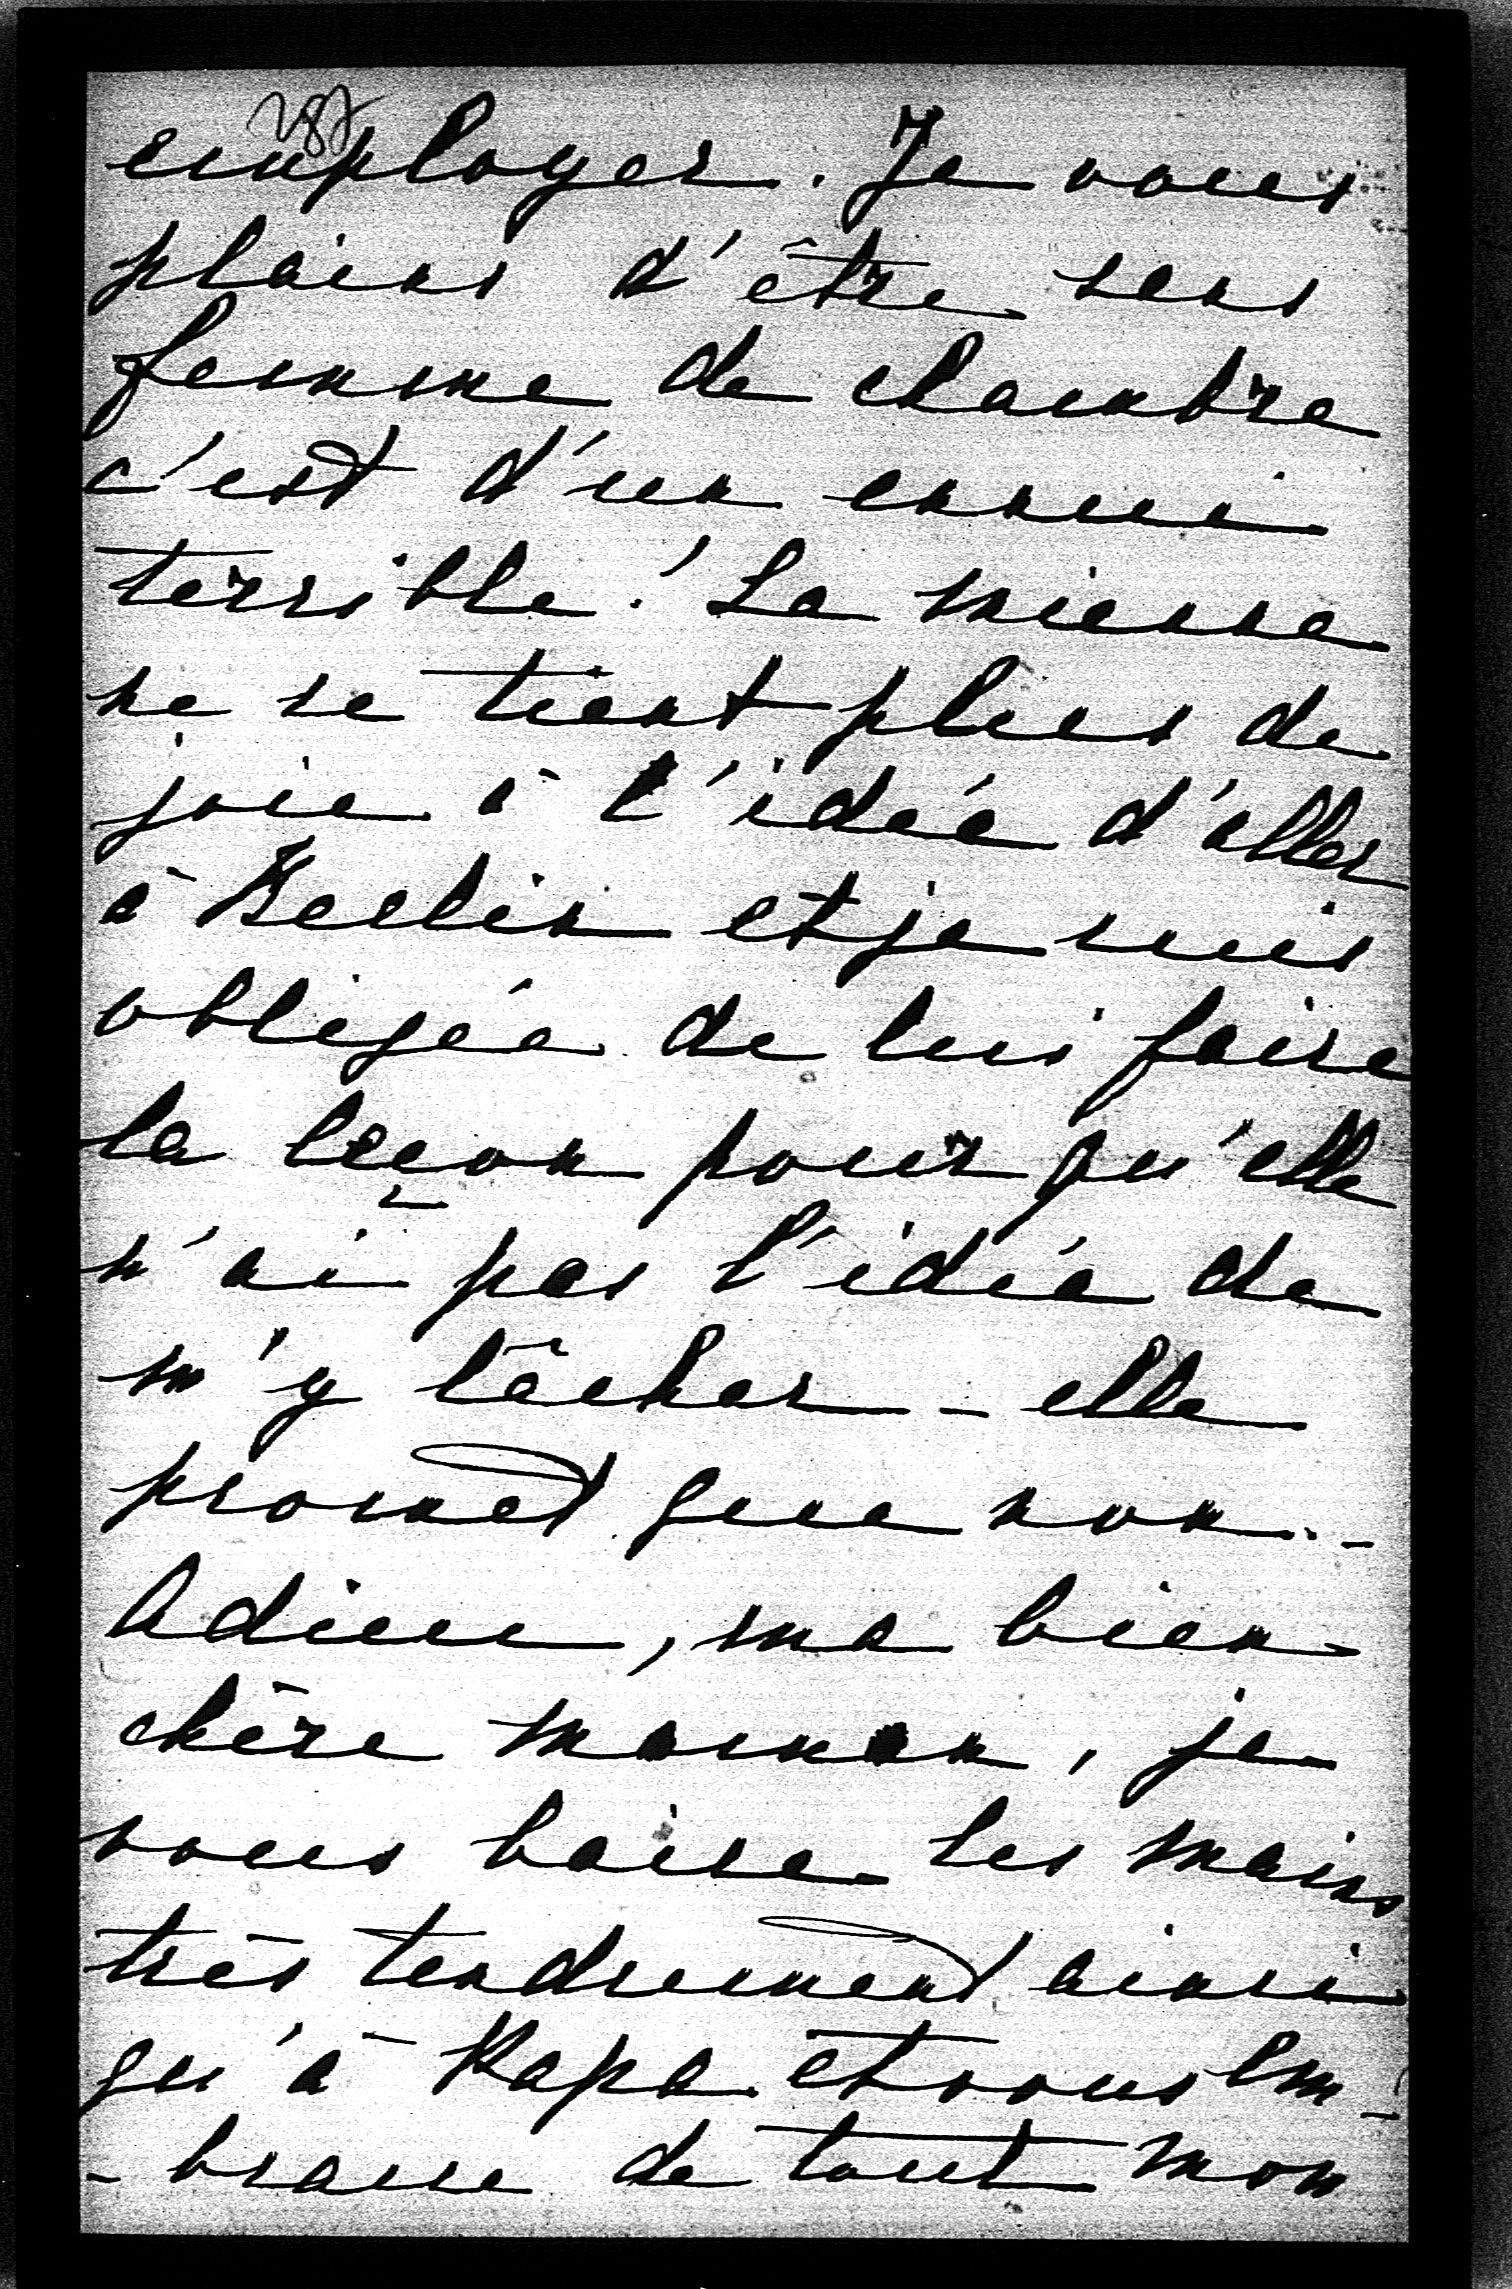 287
employer. Je vous
plains d'être sans
femme de chambre
c'est d'un ennui
terrible! La mienne
ne se tient plus de
joie à l'idée d'aller
à Berlin et je suis
obligée de lui faire
la leçon pour qu'elle
n'ai pas l'idée de
m'y lâcher - elle
promet que non. -
Adieu, ma bien
chère maman, je
vous baise les mains
très tendrement ainsi
qu'à Papa et vous em-
- brasse de tout mon